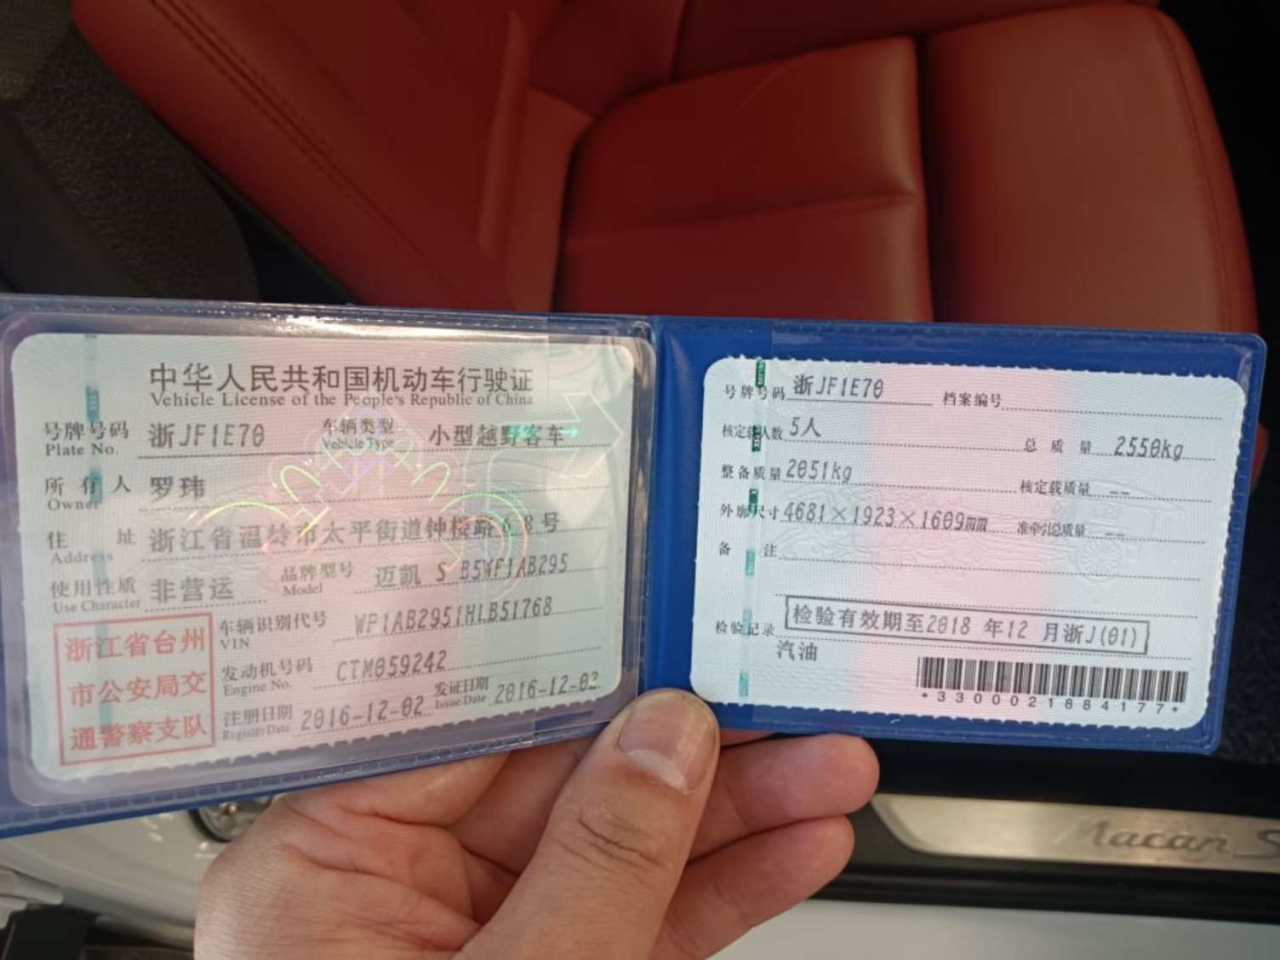 中华人民共和国机动车行驶证
Vehicle License of the People's Republic of China
号牌号码 浙JF1E70 车辆类型 小型越野客车
Plate No. Vehicle Type
所有人 罗玮
Owner
住址 浙江省温岭市太平街道钟楼路68号
Address
使用性质 非营运 品牌型号 迈凯 S B5WF1AB295
Use Character Model
浙江省台州
市公安局交
通警察支队
车辆识别代号 WP1AB2951HLB51768
VIN
发动机号码 CTM059242
Engine No.
注册日期 2016-12-02 发证日期 2016-12-02
Register Date Issue Date
号牌号码 浙JF1E70 档案编号
核定载人数 5人 总质量 2550kg
整备质量 2051kg 核定载质量 --
外廓尺寸 4681×1923×1609mm 准牵引总质量 --
备注
检验记录 检验有效期至2018 年12 月浙J(01)
汽油
*3300021684177*
Macan S